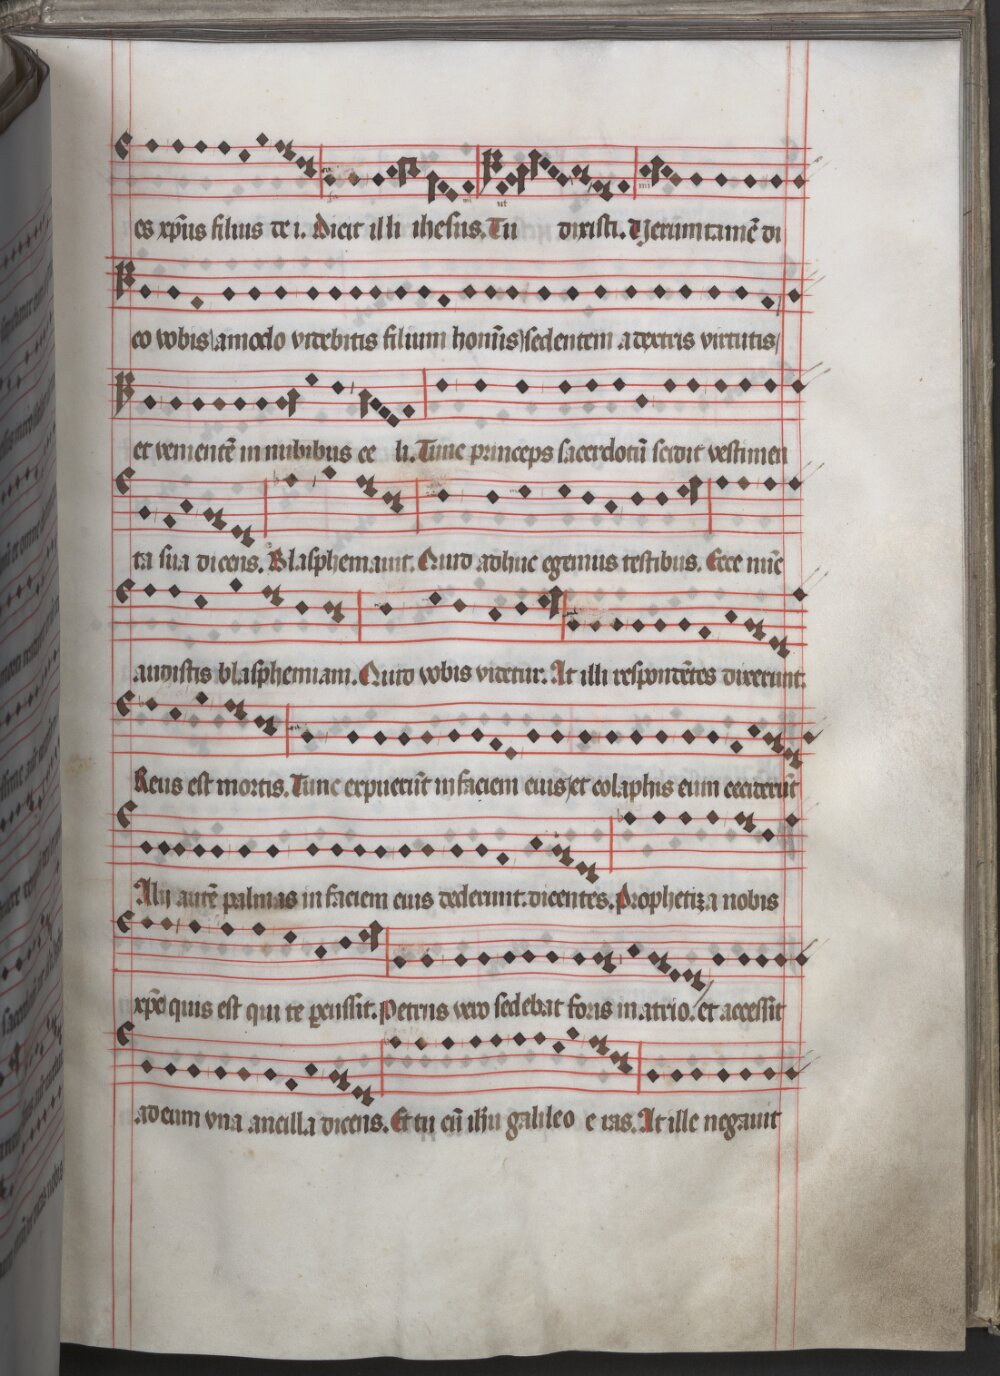 es xp̄us filius dei. Dicit illi ihesus. Tu dixisti. Verumtamē di
co vobis amodo videbitis filium homīs sedentem a dextris virtutis
et venientē in nubibus celi. Tunc princeps sacerdotū scidit vestimen
ta sua dicens. Blasphemavit. Quid adhuc egemus testibus. Ecce nūc
audistis blasphemiam. Quid vobis videtur. At illi respondētes dixerunt.
Reus est mortis. Tunc expuerūt in faciem eius et colaphis eum ceciderūt
Alij autē palmas in faciem eius dederunt. dicentes. Prophetiza nobis
xpē quis est qui te percussit. Petrus vero sedebat foris in atrio. et accessit
ad eum una ancilla dicens. Et tu cū ihū galileo eras. At ille negavit